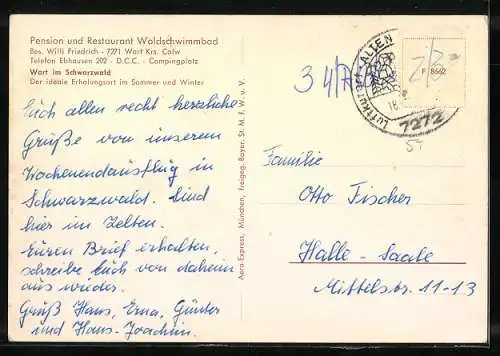 Pension und Restaurant Waldschwimmbad
Bes. Willi Friedrich - 7271 Wart Krs. Calw
Telefon Ebhausen 202 - D.C.C. - Campingplatz
Wart im Schwarzwald
Der ideale Erholungsort im Sommer und Winter
Euch allen recht herzliche
Grüße von unserem
Wochenendausflug in
Schwarzwald. Sind
hier im Zelten.
Euren Brief erhalten,
schreibe Euch von daheim
aus wieder.
Gruß Hans, Erna, Günter
und Hans-Joachim.
Aero-Express, München, Freigeg. Bayer. St. M. f. W. u. V.
LUFTKURORT ALTEN
18.
7272
F 8662
54
Familie
Otto Fischer
Halle-Saale
Mittelstr. 11-13